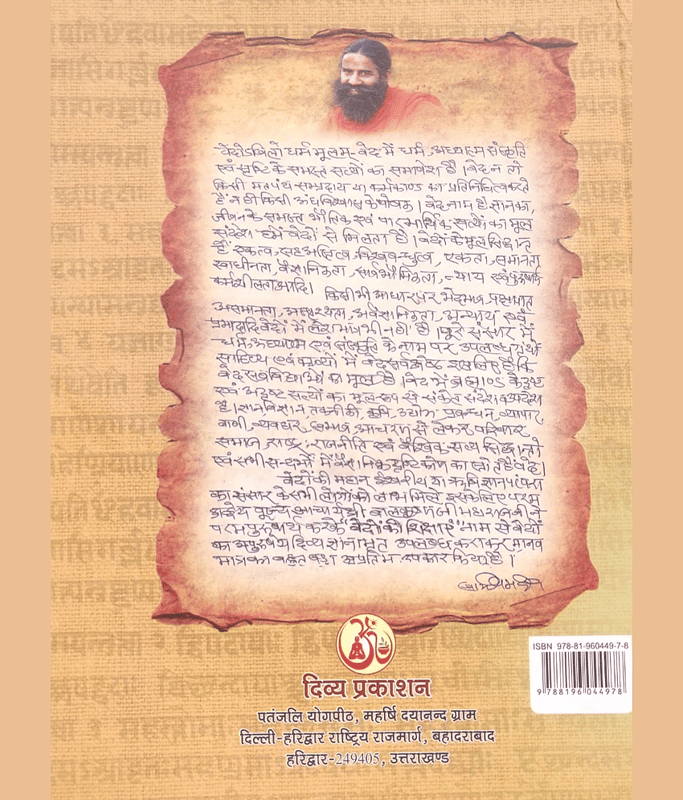 वेदोऽखिलो धर्म मूलम्- वेद में धर्म, अध्यात्म संस्कृति
एवं सृष्टि के समस्त सत्यों का समावेश है। वेद न तो
किसी मत पंथ सम्प्रदाय या कर्मकाण्ड का प्रतिनिधित्व करते
हैं न ही किसी अंधविश्वास के पोषक। वेद नाम है ज्ञान का,
जीवन के समस्त भौतिक एवं पारमार्थिक सत्यों का मूल
संदेश हमें वेदों से मिलता है। वेदों के मूल सिद्धान्त
हैं एकत्व, सहअस्तित्व, विश्वबन्धुत्व, एकता, समानता
स्वाधीनता, वैज्ञानिकता, सार्वभौमिकता, न्याय एवं
कर्मशीलता आदि। किसी भी आधार पर भेदभाव, पक्षपात
असमानता, अस्पृश्यता, अवैज्ञानिकता, अन्याय एवं
प्रमादादि वेदों में लेश मात्र भी नहीं है। पूरे संसार में
धर्म, अध्यात्म एवं संस्कृति के नाम पर उपलब्ध ग्रंथों
साहित्य एवं काव्यों में वेद सर्वश्रेष्ठ इसलिए हैं कि
वेद सब विद्याओं का मूल है। वेद में ब्रह्माण्ड के दृष्ट
एवं अदृष्ट सत्यों का मूल रूप से संकेत संदेश व आदेश
है। ज्ञान विज्ञान, तकनीकी, कृषि, उद्योग, प्रबन्धन, व्यापार,
वाणी, व्यवहार, स्वभाव, आचरण से लेकर परिवार
समाज, राष्ट्र, राजनीति एवं वैश्विक सत्य सिद्धान्तों
एवं सभी सन्दर्भों में वैज्ञानिक दृष्टिकोण का स्रोत है वेद।
वेदों की महान ईश्वरीय या ऋषि ज्ञान परंपरा
का संसार के सभी लोगों को लाभ मिले इसके लिए परम
श्रद्धेय पूज्य आचार्य श्री बालकृष्ण जी महाराज ने
परम पुरुषार्थ करके "वेदों की शिक्षाएं" नाम से वेदों
का दिव्य ज्ञानामृत उपलब्ध कराकर मानव
मात्र का बहुत बड़ा अप्रतिम उपकार किया है।
ISBN 978-81-960449-7-8
9 788196 044978
दिव्य प्रकाशन
पतंजलि योगपीठ, महर्षि दयानन्द ग्राम
दिल्ली-हरिद्वार राष्ट्रिय राजमार्ग, बहादराबाद
हरिद्वार-249405, उत्तराखण्ड